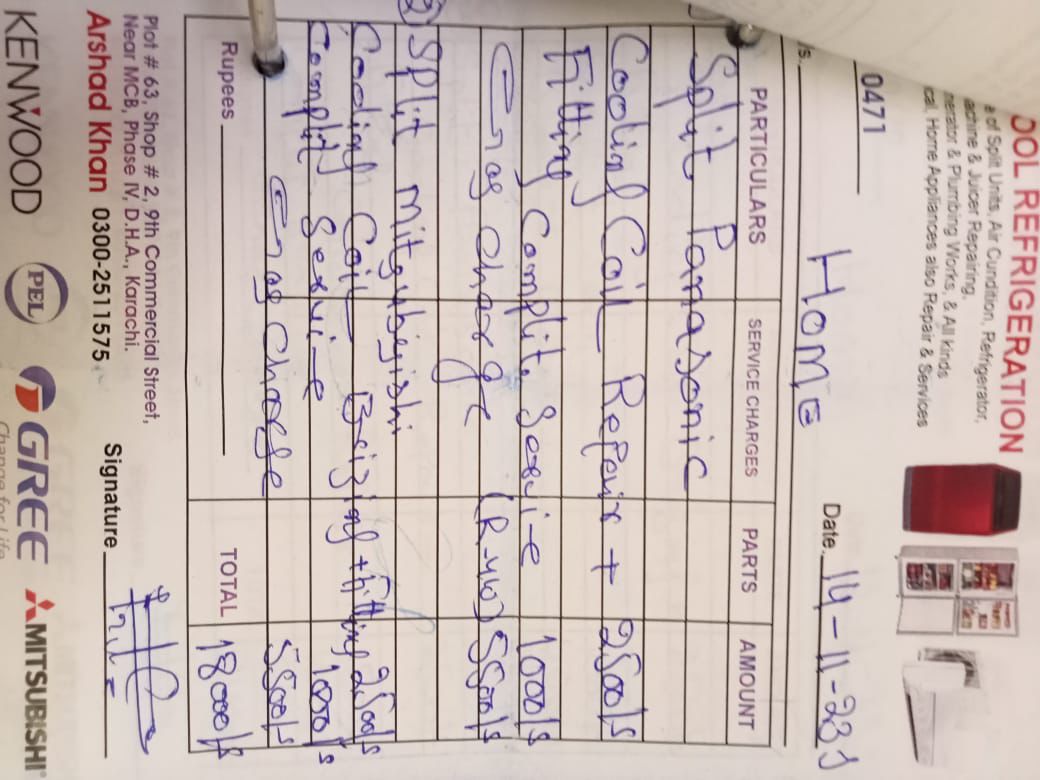 OOL REFRIGERATION
of Split Units, Air Cundition, Refrigerator,
achine & Juicer Repairing,
nerator & Plumbing Works, & All kinds
cal, Home Appliances also Repair & Services
0471
Date. 14-11-23
/s. Home
PARTICULARS SERVICE CHARGES PARTS AMOUNT
Split Panasonic
Cooling Coil Repair + 2500/s
Fitting
Complite Servi-e 1000/s
Gas charge (R-410) 5500/s
2) Split mitsubisishi
Cooling Coil Brizing + fitting 2500/s
Complit Servi-e 1000/s
Gas Charge 5500/s
Rupees TOTAL 18000/s
Plot # 63, Shop # 2, 9th Commercial Street,
Near MCB, Phase IV, D.H.A., Karachi.
Arshad Khan 0300-2511575
Signature
KENWOOD PEL GREE MITSUBISHI
Change for Life